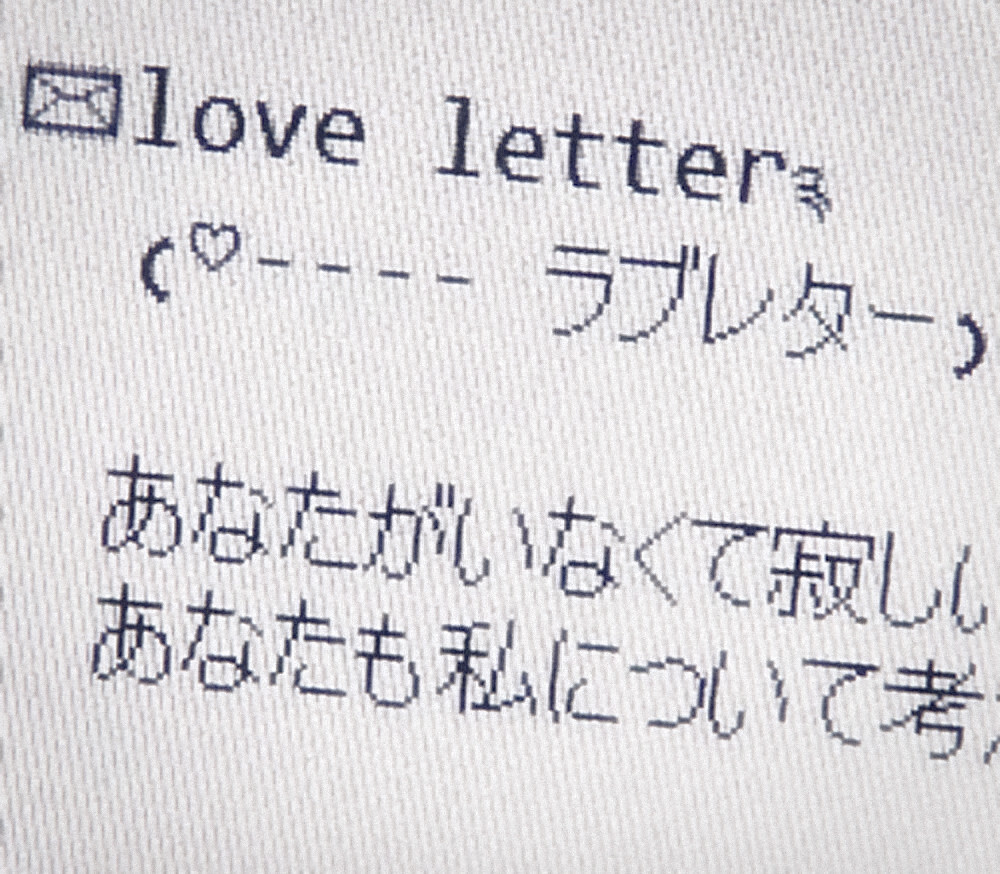 ✉love letter
(♡---- ラブレター)
あなたがいなくて寂しい
あなたも私について考